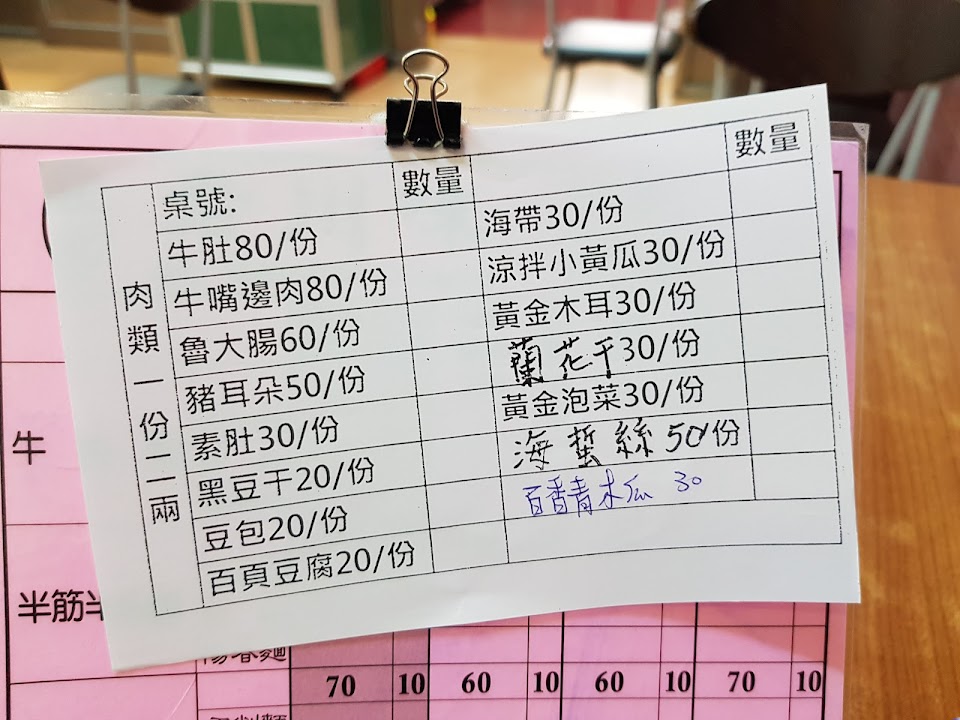 數量
數量
桌號:
牛肚80/份
牛嘴邊肉80/份
魯大腸60/份
豬耳朵50/份
素肚30/份
黑豆干20/份
豆包20/份
百頁豆腐20/份
肉類一份二兩
海帶30/份
涼拌小黃瓜30/份
黃金木耳30/份
蘭花干30/份
黃金泡菜30/份
海蜇絲50份
百香青木瓜 30
牛
半筋半
陽春麵
70 10 60 10 60 10 70 10